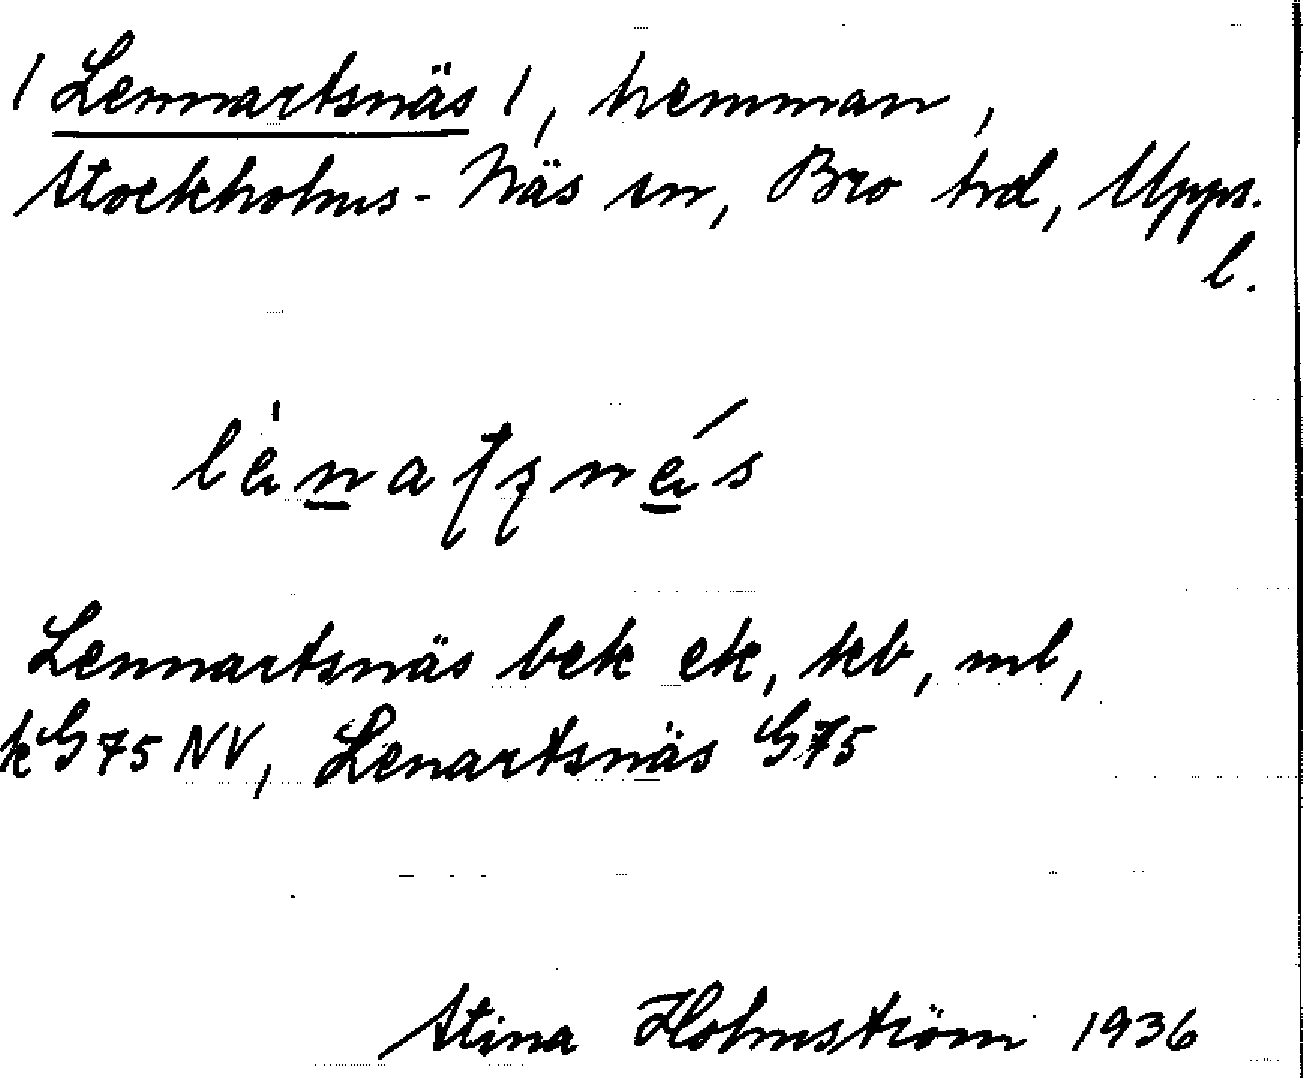 / Lennartsnäs /, hemman,
Stockholms-Näs sn, Bro hd, Upps.
l.
Lennartsnäs bek ek, kb, ml,
kG75 NV, Lenartsnäs G75
Stina Holmström 1936